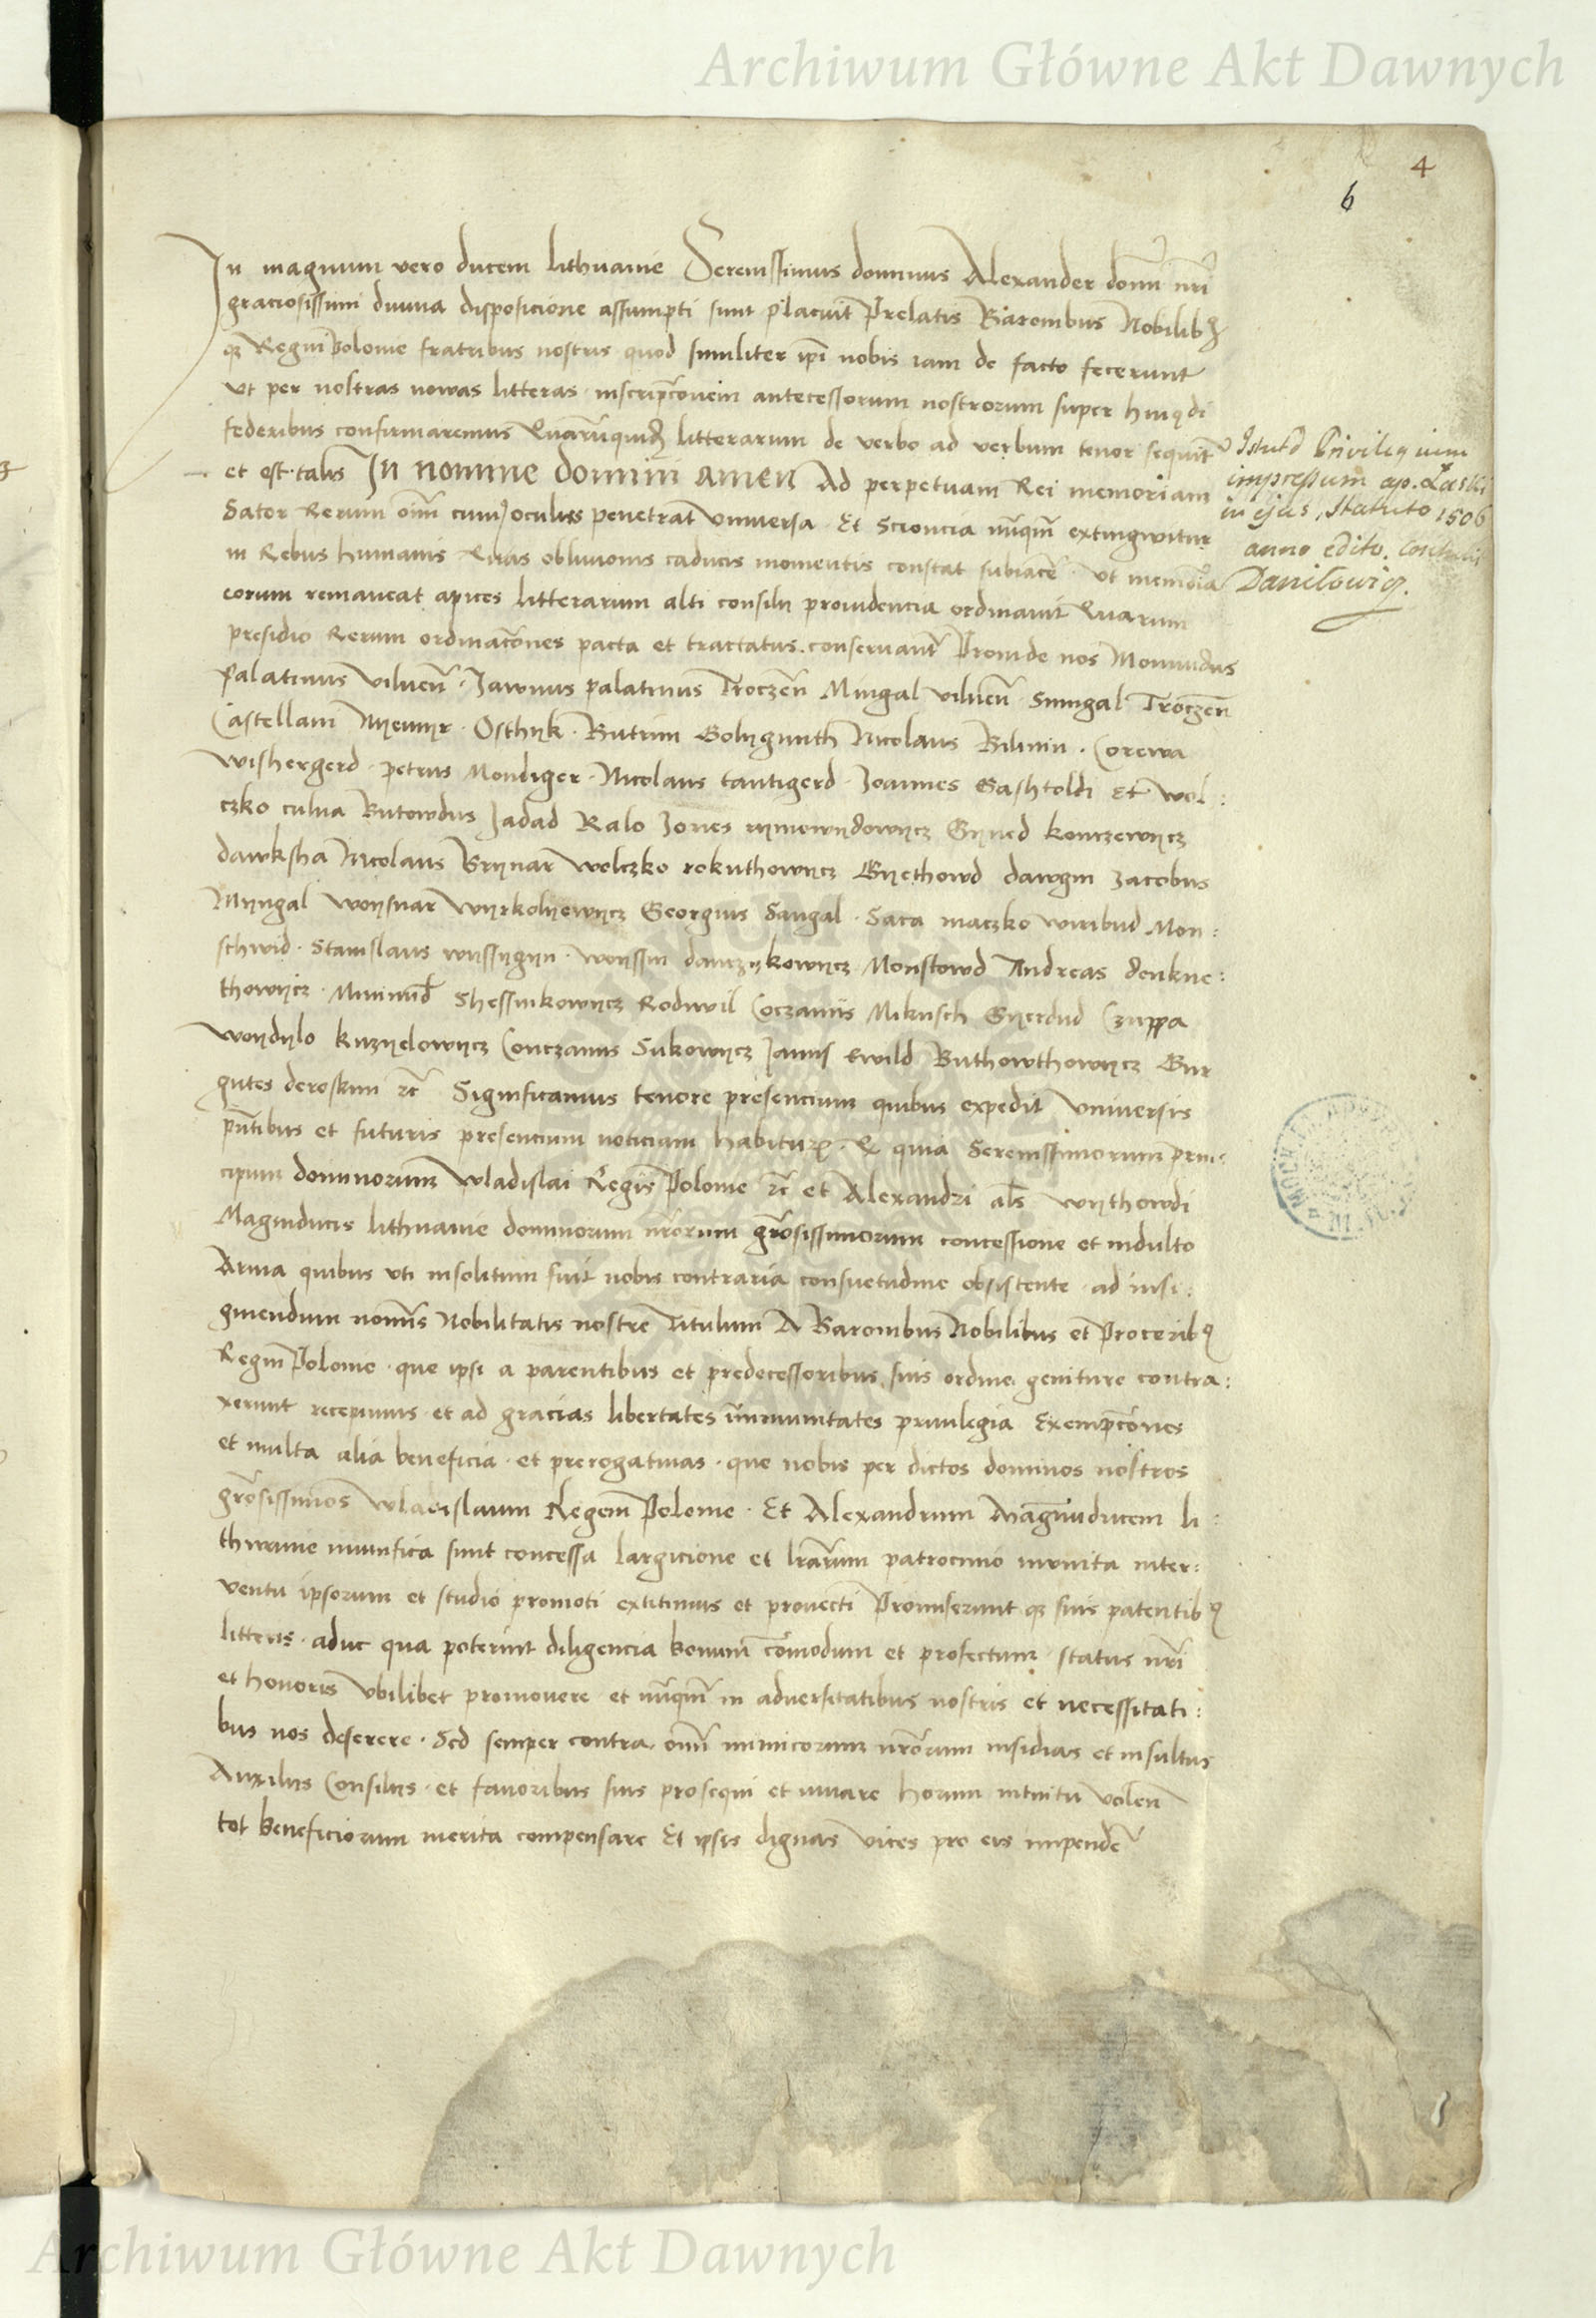 Archiwum Główne Akt Dawnych
4
6
In magnum vero ducem lithuanie Serenissimus dominus Alexander domī nrī
graciosissimi divina disposicione assumpti sunt placuit Prelatis Baronibus Nobilibꝫ
qꝫ Regni Polonie fratribus nostris quod similiter ipi nobis iam de facto fecerunt
ut per nostras nowas litteras inscripcōnem antecessorum nostrorum super huiqdi
federibus confirmaremus Quarūquidꝫ litterarum de verbo ad verbum tenor sequitr
et est talis In nomine domini amen Ad perpetuam Rei memoriam
Sator Rerum oīm cum oculis penetrat universa Et Sciencia nūqm̄ extingwitur
in Rebus humanis Quas oblivionis caducis momentis constat subiacē ut memoria
eorum remaneat apices litterarum alti consilii providencia ordinavit Quarum
presidio Rerum ordinacōnes pacta et tractatus conservantr Proinde nos Monuidus
Palatinus vilnen̄ Jawnus palatinus Troczen̄ Mingal vilnen̄ Sunigal Troczen̄
Castellani Nyemyr Osthyk Butrim Golygunth Nicolaus Bilimin Corewa
wishergerd petrus Mondiger Nicolaus tautigerd Joannes Gashtoldi et wol:
czko culua Butowdus Jadad Ralo Jones rymowydowycz Gyned konczewycz
dawksha Nicolaus Brynar wolczko rokuthowycz Gyethowd dawgin Jacobus
Myngal woysnar wyrkolyewycz Georgius Sangal Saca naczko wiribud Mon:
schwid Stanislaus wyssygyn woyssin danczykowycz Monstowd Andreas denkne:
thowycz Minimūd Shessinkowycz Rodiwil Coczanus Mikusch Gyerdud Czuppa
woydylo kuzyelowycz Conczanus Sukowycz Janus ewild Buthowthowycz Gur
gutes deroskini ꝛc Significamus tenore presencium quibus expedit universis
pn̄tibus et futuris presencium noticiam habiturꝭ Et quia Serenissimorum prin:
cipum dominorum wladislai Regis Polonie ꝛc et Alexandri als wythowdi
Magniducis lithuanie dominorum nr̄orum gr̄osissimorum concessione et indulto
Arma quibus uti insolitum fuit nobis contraria consuetudine obsistente ad insi:
gniendum nominis Nobilitatis nostre Titulum A Baronibus Nobilibus et Proceribꝰ
Regni Polonie que ipsi a parentibus et predecessoribus suis ordine geniture contra:
xerunt recepimus et ad gracias libertates immunitates privilegia Exempcōnes
et multa alia beneficia et prerogativas que nobis per dictos dominos nostros
gr̄osissimos wladislaum Regem Polonie Et Alexandrum Magnuducem li:
thuanie munifica sunt concessa largicione et lr̄arum patrocinio munita inter:
ventu ipsorum et studio promoti extitimus et provecti Promiserunt qꝫ suis patentibꝰ
litteris aduc qua poterint diligencia bonum cōmodum et profectum status nrī
et honoris ubilibet promovere et nūqm̄ in adversitatibus nostris et necessitati:
bus nos deserere Sed semper contra oīm inimicorum nr̄orum insidias et insultus
Auxiliis Consiliis et favoribus suis prosequi et iuvare horum intuitu volen̄
tot beneficiorum merita compensare Et ipsis dignas vices pro eis impendē
Istud Privilegium
impressum ap. Łaski
in ejus Statuto 1506
anno edito. Contulit
Daniłowicz.
Archiwum Główne Akt Dawnych